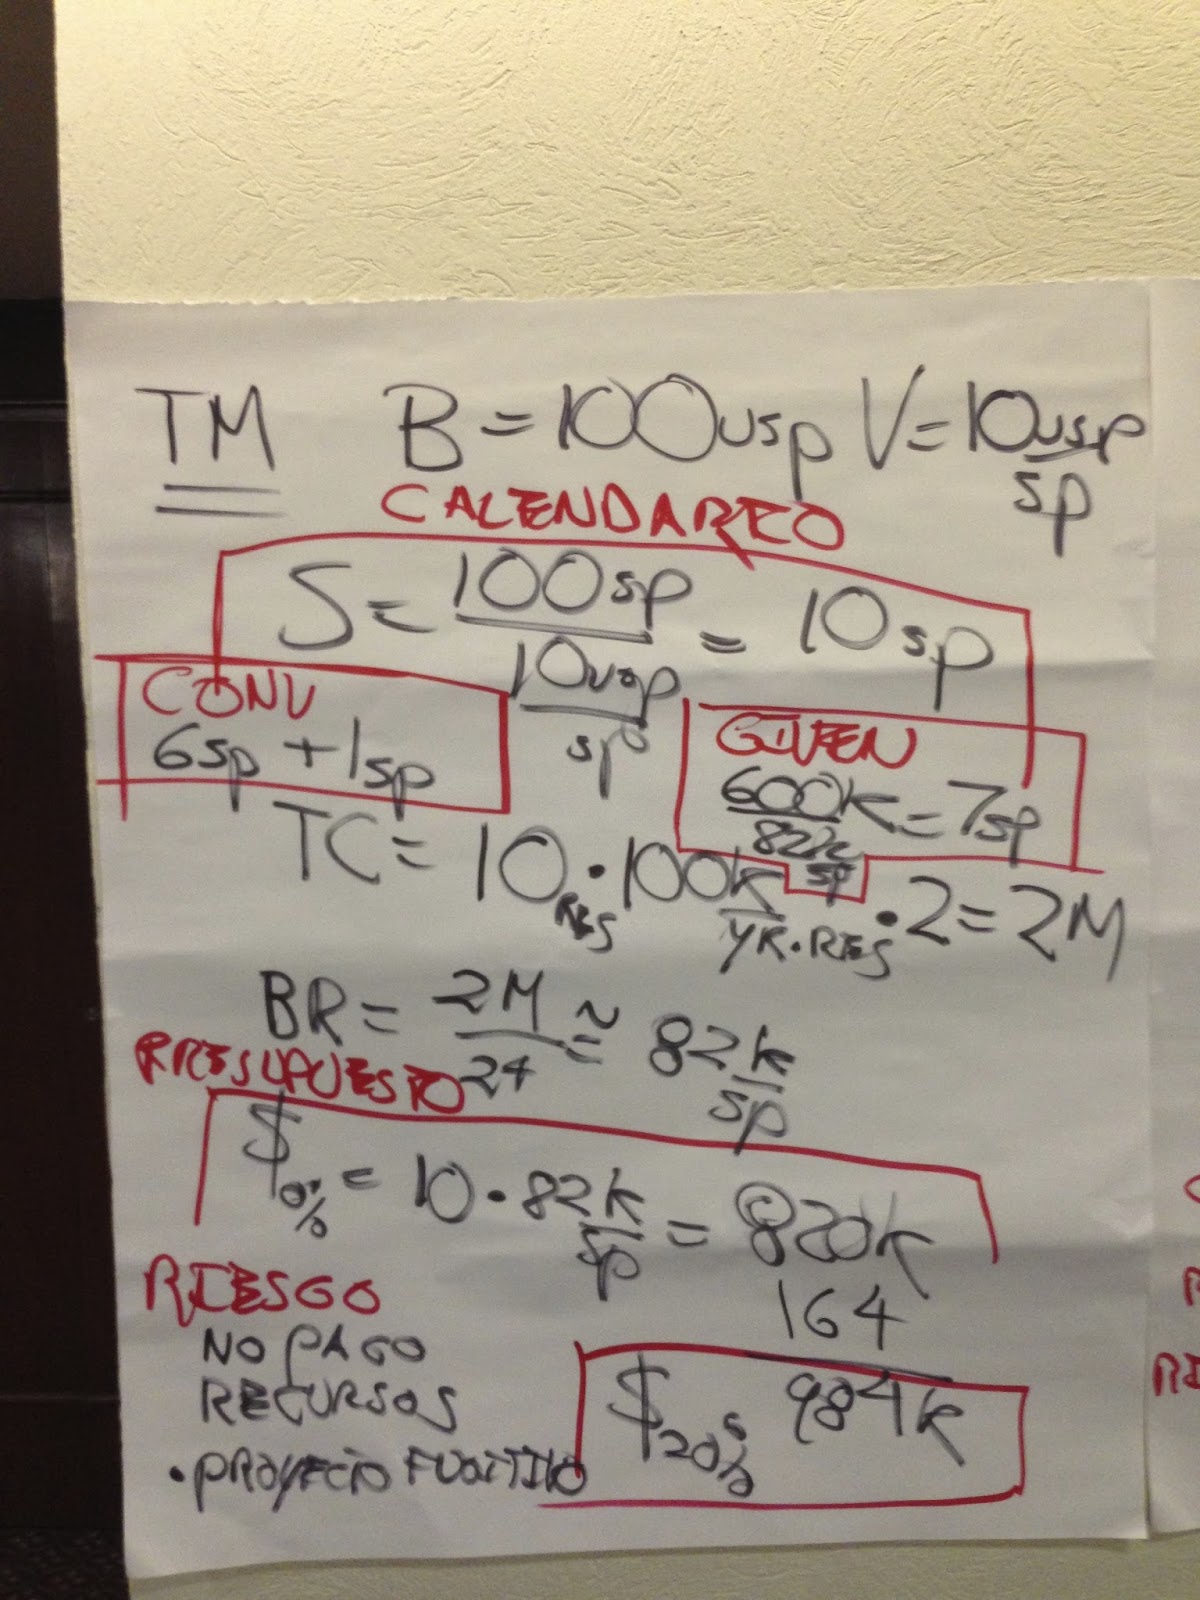 TM B = 100usp V = 10usp/sp
CALENDAREO
S = 100sp / 10usp/sp = 10sp
CONV
6sp + 1sp
GIVEN
600k / 82k/sp = 7sp
TC = 10 RES · 100k / YR·RES · 2 = 2M
BR = 2M / 24 ≈ 82k/sp
PRESUPUESTO
$0% = 10 · 82k/sp = 820k
164
RIESGO
NO PAGO
RECURSOS
· PROYECTO FUGITIVO
$20% 984k